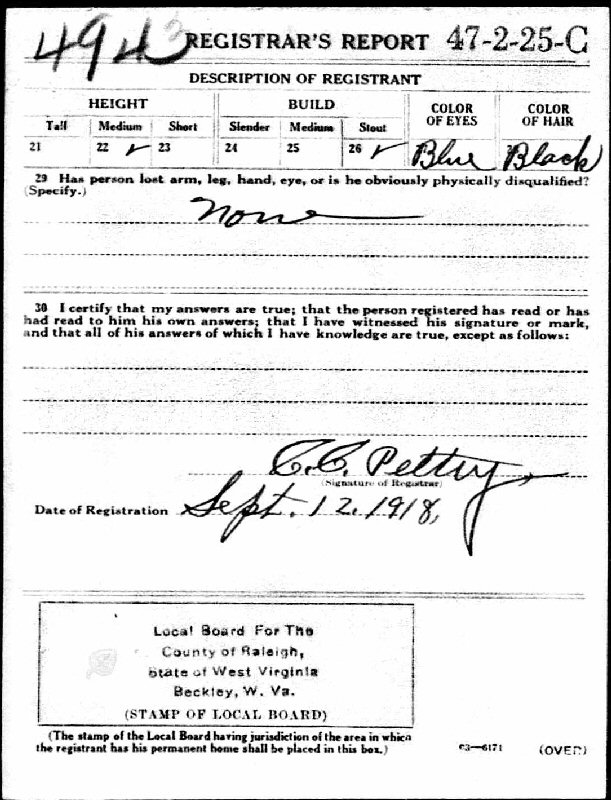 4943 REGISTRAR'S REPORT 47-2-25-C
DESCRIPTION OF REGISTRANT
HEIGHT BUILD COLOR OF EYES COLOR OF HAIR
Tall Medium Short Slender Medium Stout
21 22 ✓ 23 24 25 26 ✓ Blue Black
29 Has person lost arm, leg, hand, eye, or is he obviously physically disqualified?
(Specify.)
None
30 I certify that my answers are true; that the person registered has read or has
had read to him his own answers; that I have witnessed his signature or mark,
and that all of his answers of which I have knowledge are true, except as follows:
C.C. Pettry
(Signature of Registrar)
Date of Registration Sept. 12, 1918,
Local Board For The
County of Raleigh,
State of West Virginia
Beckley, W. Va.
(STAMP OF LOCAL BOARD)
(The stamp of the Local Board having jurisdiction of the area in which
the registrant has his permanent home shall be placed in this box.)
03—6171 (OVER)